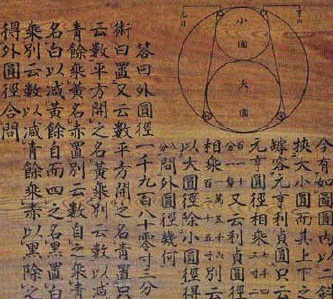 小圓
大圓
今有如圖圓内以一斜
挾大小圓而其上下之
罅容元亨利貞圓只云
元亨圓徑相乗
又云利貞圓徑
相乗 別云
以大圓徑除小圓徑得
八分問外圓徑幾何
答曰外圓徑一千九百八十零寸三分
術曰置又云數平方開之名青
云數平方開之名黄云數以減
青餘乗黄名赤置別云數自之乗青
名白以減黄餘自而四之名黒置白
乗別云數以減青餘乗赤以黒除之
得外圓徑合問